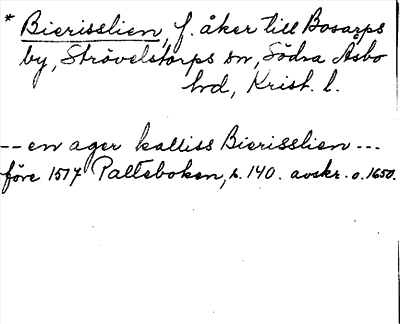 * Bierisslien, f. åker till Bosarps
by, Strövelstorps sn, Södra Asbo
hd, Krist. l.
-- en ager kalliss Bierisslien ---
före 1517 Palteboken, s. 140. avskr. o. 1650.